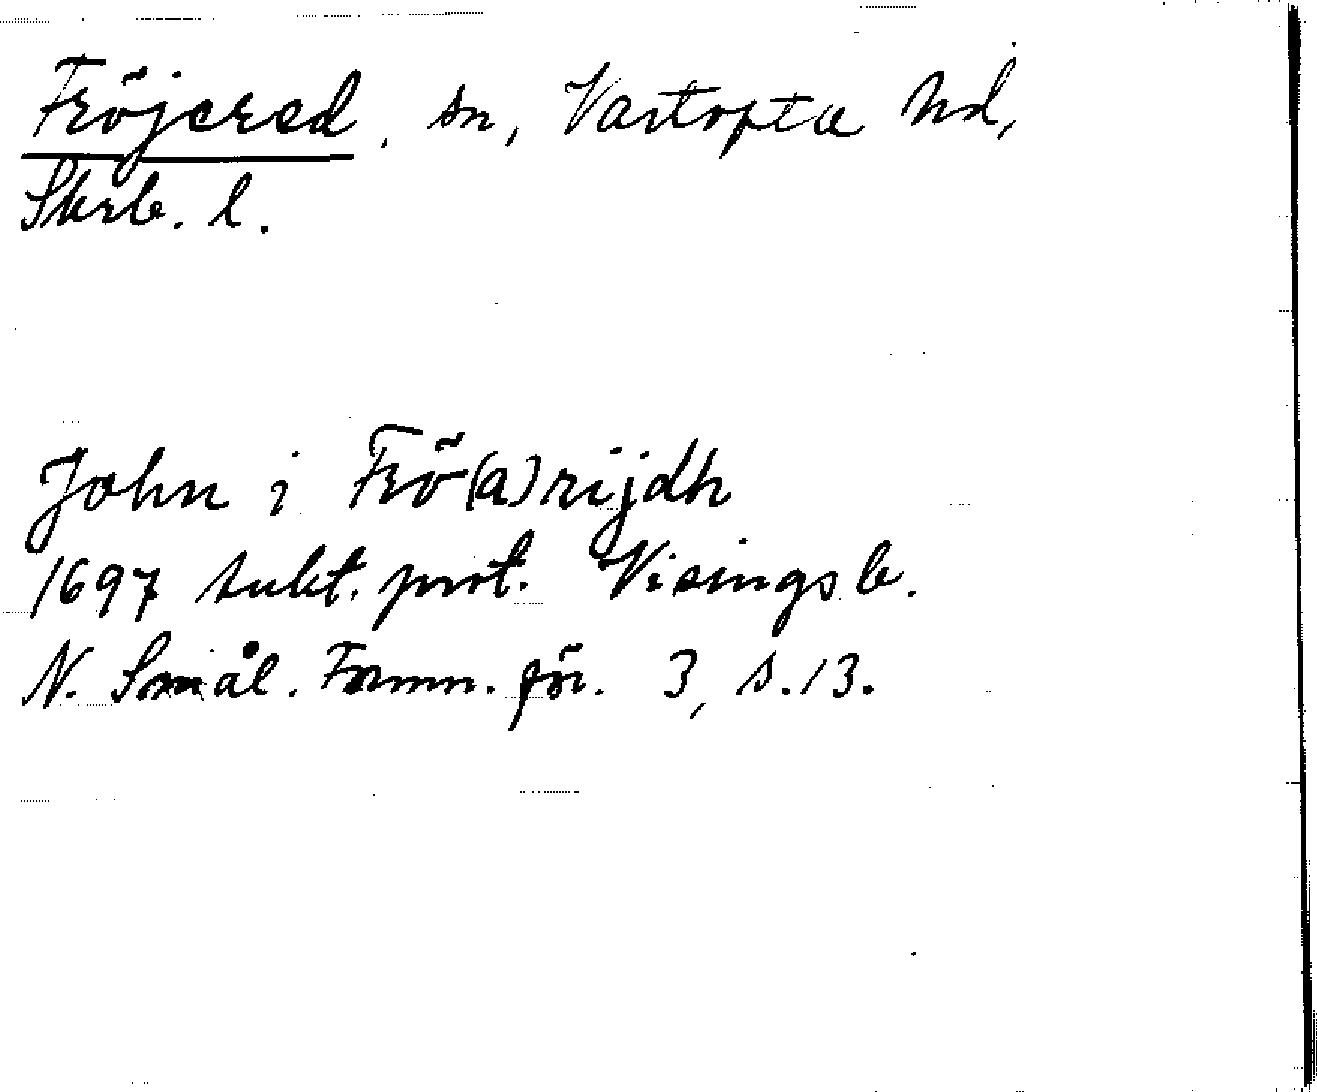 Fröjered, sn, Vartofta hd,
Skrb. l.
John i Frö(a)rijdh
1697 tukt. prot. Visingsb.
N. Smål. Fornm. för. 3, s. 13.